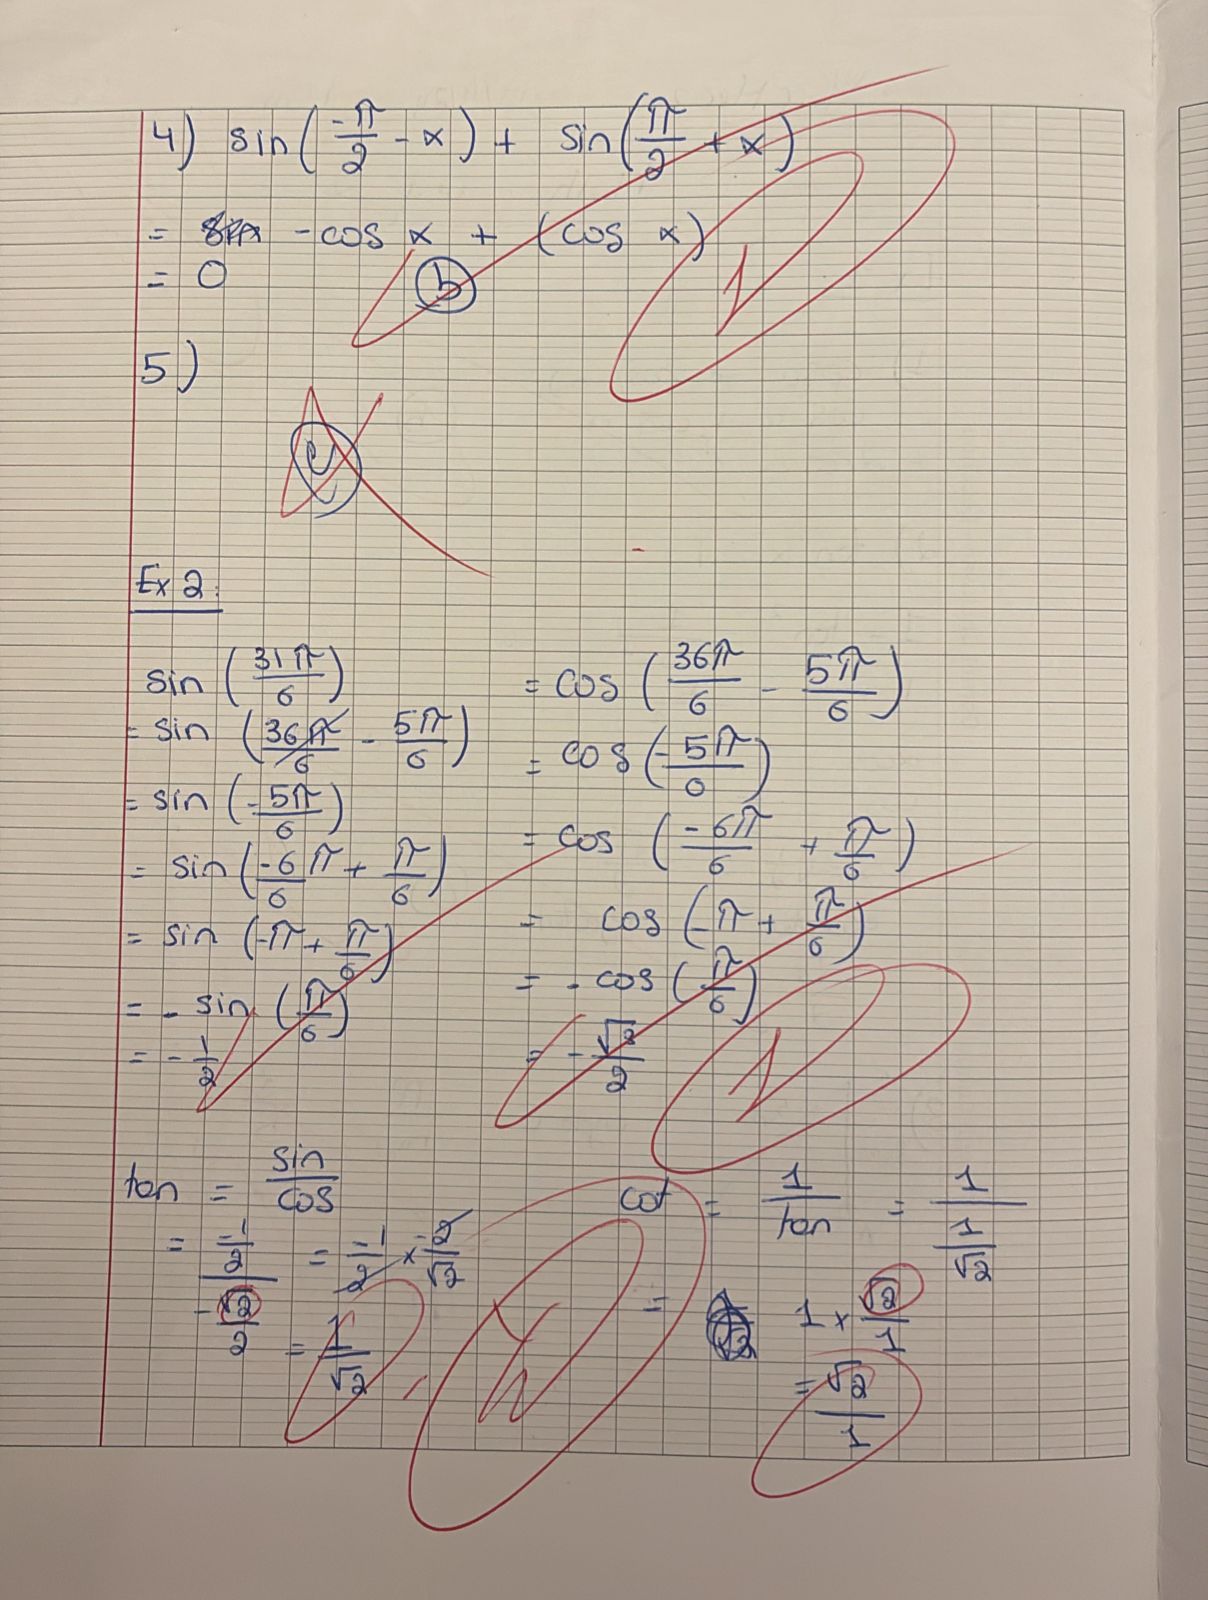 4) sin(-π/2 - x) + sin(π/2 + x)
= -cos x + (cos x)
= 0 b
1
5)
Ex 2:
sin (31π/6)
= sin (36π/6 - 5π/6)
= sin (-5π/6)
= sin (-6/6 π + π/6)
= sin (-π + π/6)
= - sin (π/6)
= - 1/2
= cos (36π/6 - 5π/6)
= cos (-5π/6)
= cos (-6π/6 + π/6)
= cos (-π + π/6)
= - cos (π/6)
= - √3/2
1
tan = sin/cos
= (-1/2)/(-√2/2) = -1/2 × -2/√2
= 1/√2
cot = 1/tan = 1/(1/√2)
= 1 × √2/1
= √2/1